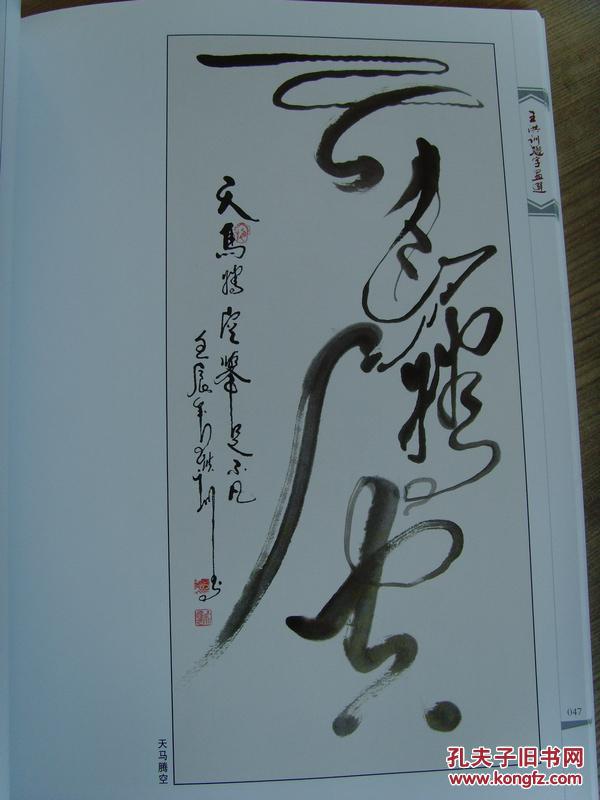 天馬騰空
天馬騰空舉足不凡
壬辰年洪訓書
王洪训题字画选
天马腾空
047
孔夫子旧书网
www.kongfz.com